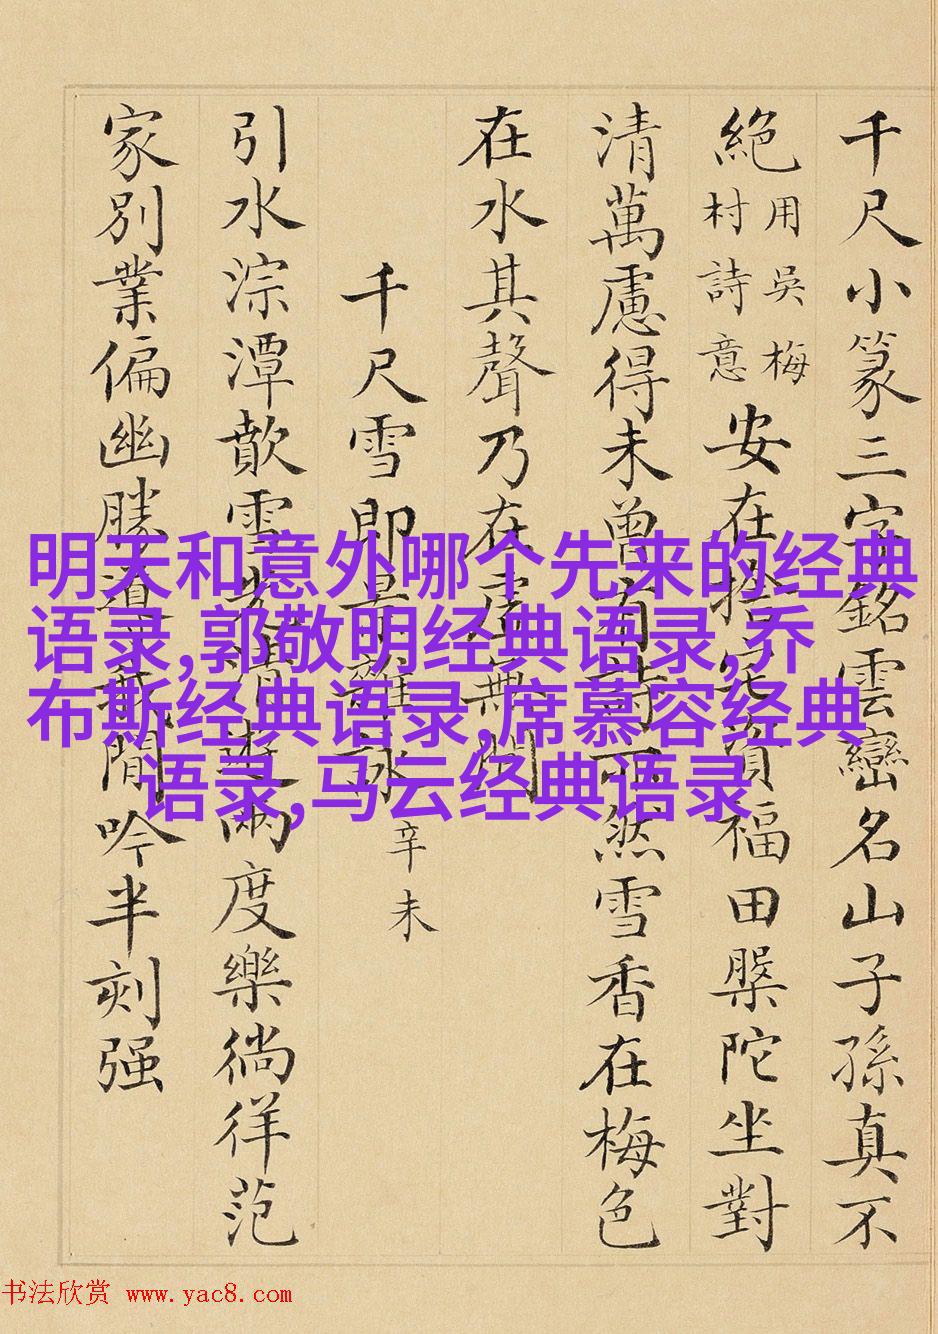 千尺小篆三字銘雲巒名山子孫真不
絕用吳梅村詩意安在捨宅資福田槃陀坐對
清萬慮得未曾有時而然雪香在梅色
在水其聲乃在虛無間
千尺雪即景雜詠辛未
引水淙潭歕雪光清遊兩度樂徜徉范
家別業偏幽勝道閒吟半刻强
明天和意外哪个先来的经典
语录,郭敬明经典语录,乔
布斯经典语录,席慕容经典
语录,马云经典语录
书法欣赏 www.yac8.com